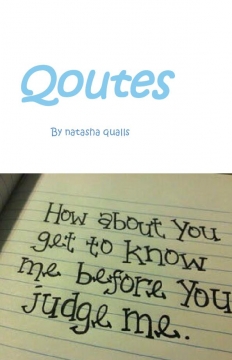 Qoutes
By natasha qualls
How about you
get to know
me before you
judge me.